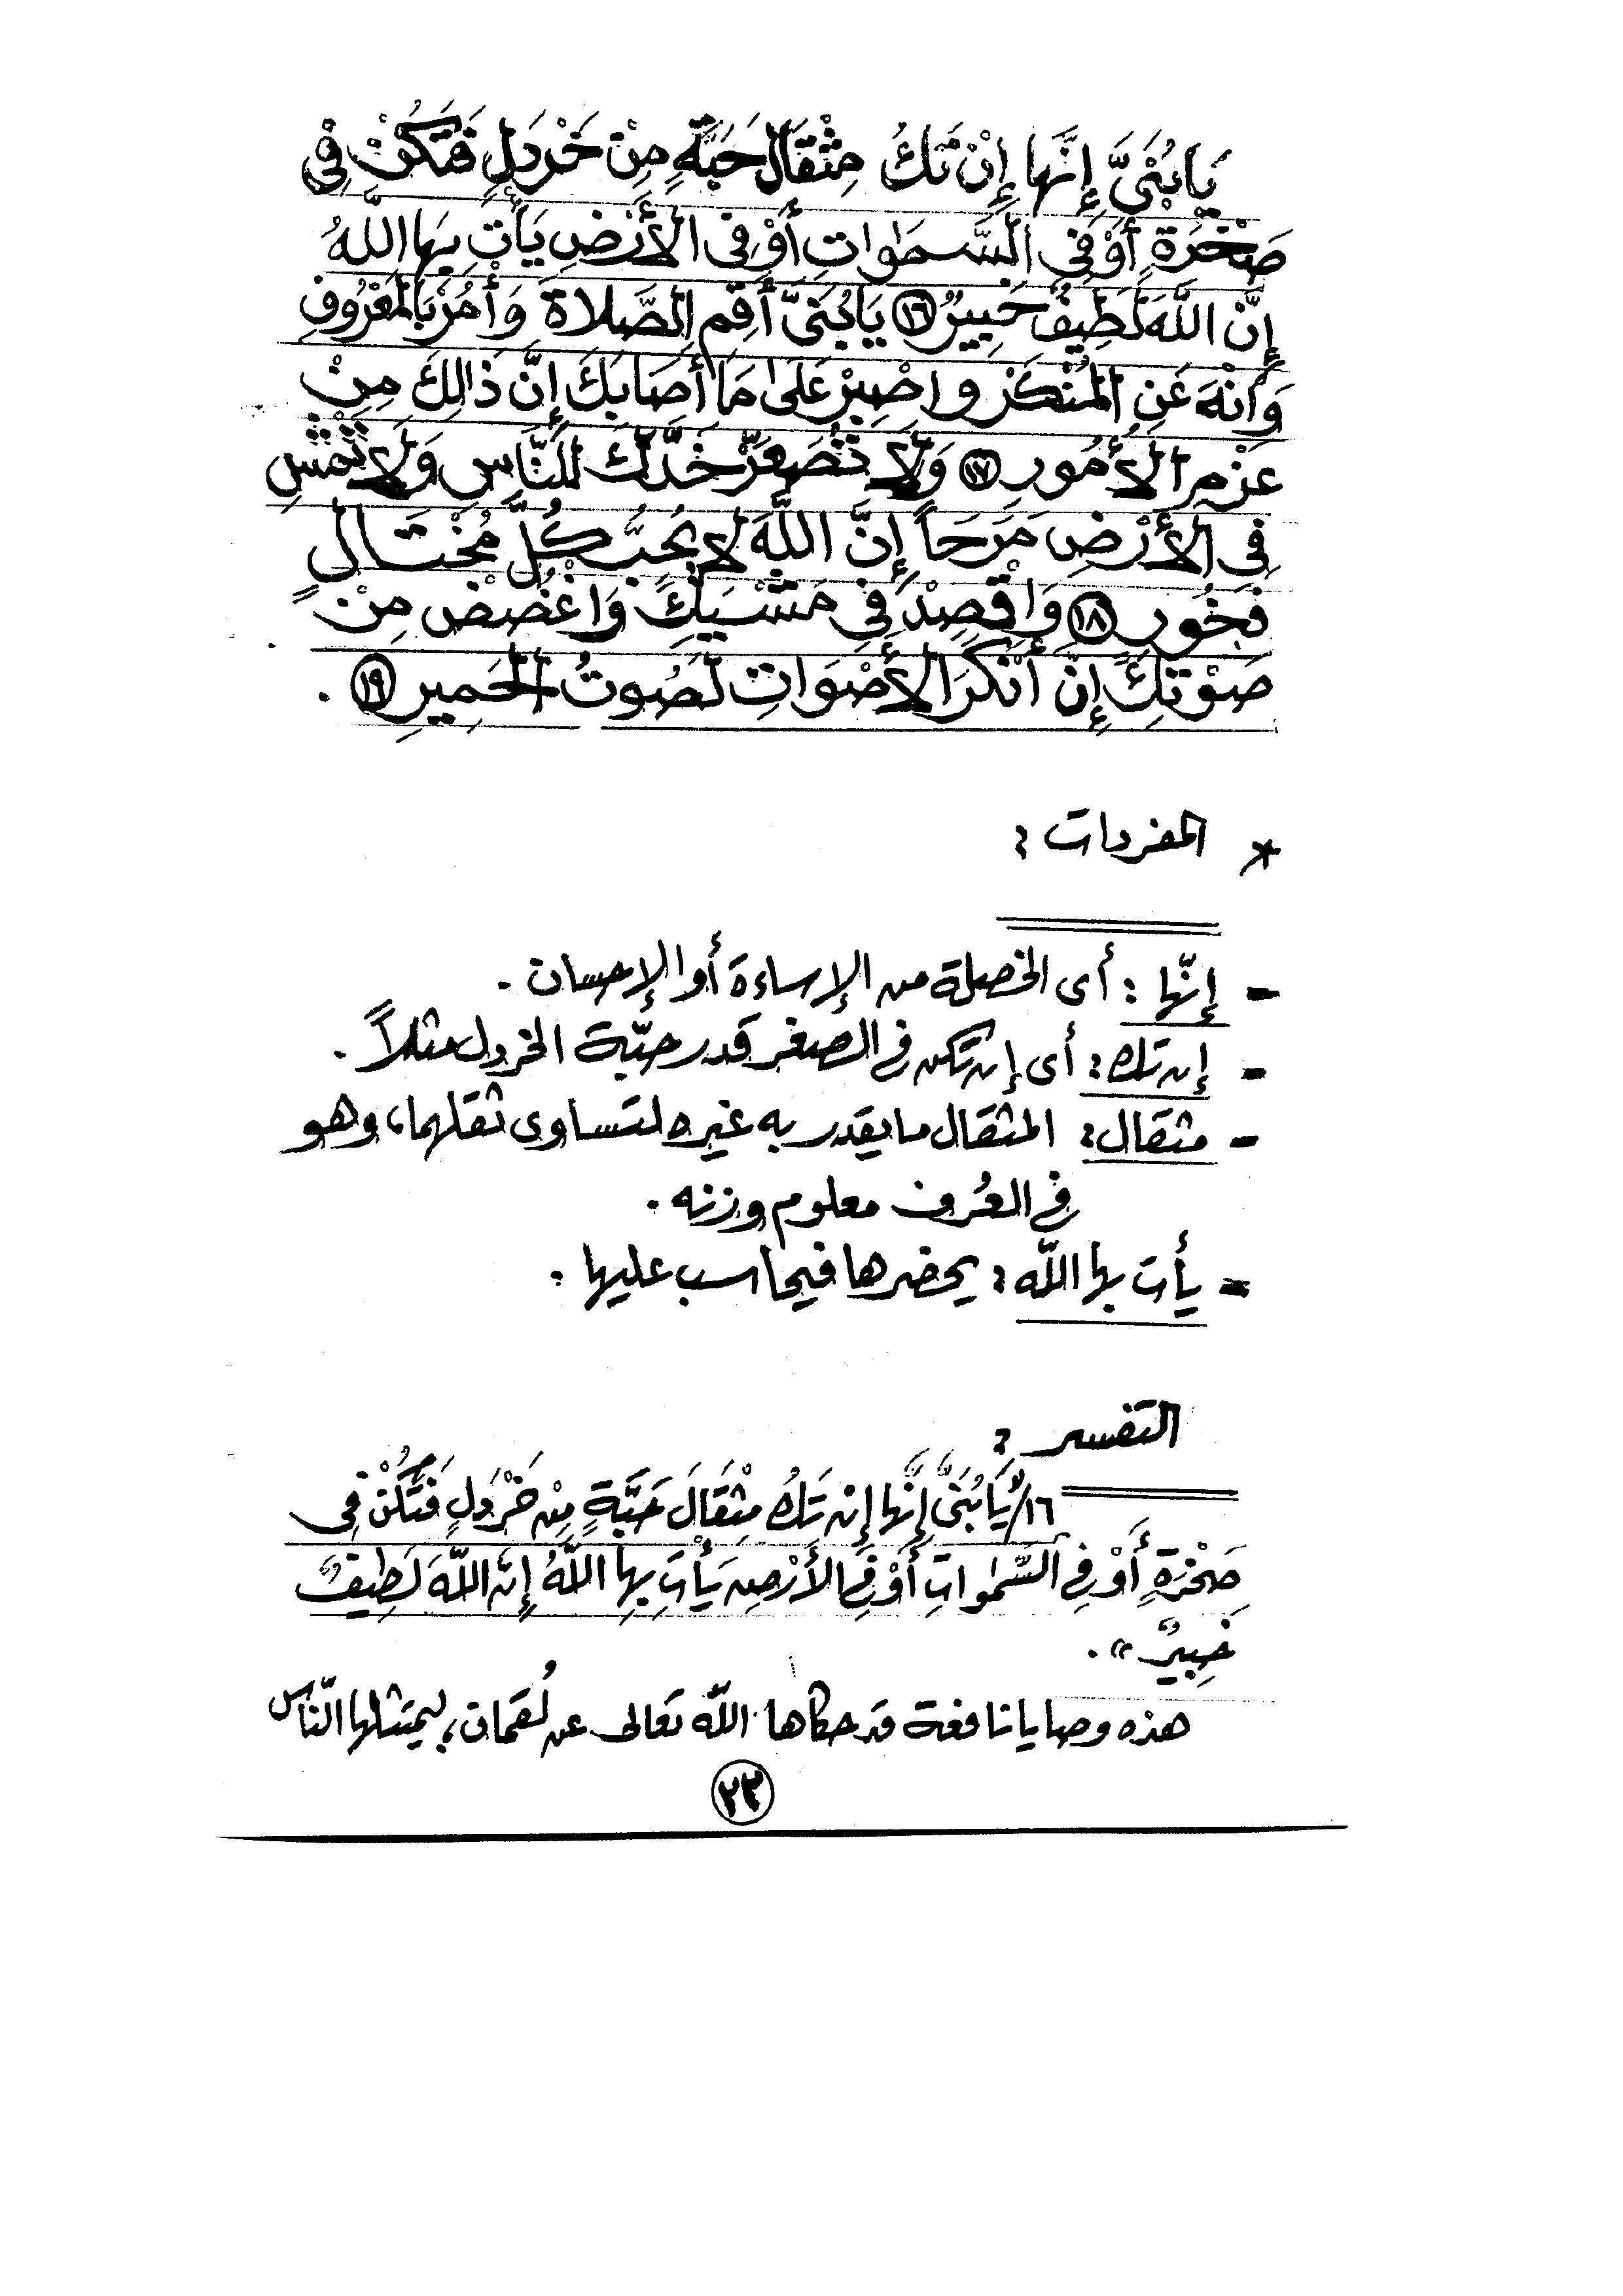 يَابُنَيَّ إِنَّهَا إِنْ تَكُ مِثْقَالَ حَبَّةٍ مِنْ خَرْدَلٍ فَتَكُنْ فِي
صَخْرَةٍ أَوْ فِي السَّمَوَاتِ أَوْ فِي الأَرْضِ يَأْتِ بِهَا اللَّهُ
إِنَّ اللَّهَ لَطِيفٌ خَبِيرٌ ١٦ يَابُنَيَّ أَقِمِ الصَّلاةَ وَأْمُرْ بِالْمَعْرُوفِ
وَانْهَ عَنِ الْمُنْكَرِ وَاصْبِرْ عَلَى مَا أَصَابَكَ إِنَّ ذَالِكَ مِنْ
عَزْمِ الأُمُورِ ١٧ وَلَا تُصَعِّرْ خَدَّكَ لِلنَّاسِ وَلَا تَمْشِ
فِي الأَرْضِ مَرَحاً إِنَّ اللَّهَ لَا يُحِبُّ كُلَّ مُخْتَالٍ
فَخُورٍ ١٨ وَاقْصِدْ فِي مَشْيِكَ وَاغْضُضْ مِنْ
صَوْتِكَ إِنَّ أَنْكَرَ الأَصْوَاتِ لَصَوتُ الْحَمِيرِ ١٩ .
* المفردات :
- إنّها : أى الخصلة من الإساءة أو الإحسان .
- إن تك : أى إن تكن في الصغر قدر حبّة الخردل مثلاً .
- مثقال : المثقال ما يقدر به غيره لتساوى ثقلهما، وهو
في العُرف معلوم وزنه .
- يأت بها اللّه : يحضرها فيحاسب عليها .
التفسير :
١٦/ "يَابُنَيَّ إِنَّهَا إِنْ تَكُ مِثْقَالَ حَبَّةٍ مِنْ خَرْدَلٍ فَتَكُنْ فِي
صَخْرَةٍ أَوْ فِي السَّمَوَاتِ أَوْ فِي الأَرْضِ يَأْتِ بِهَا اللَّهُ إِنَّ اللَّهَ لَطِيفٌ
خَبِيرٌ" .
هذه وصايا نافعة قد حكاها اللّه تعالى عن لُقمان، ليمتثلها النّاس
٢٣